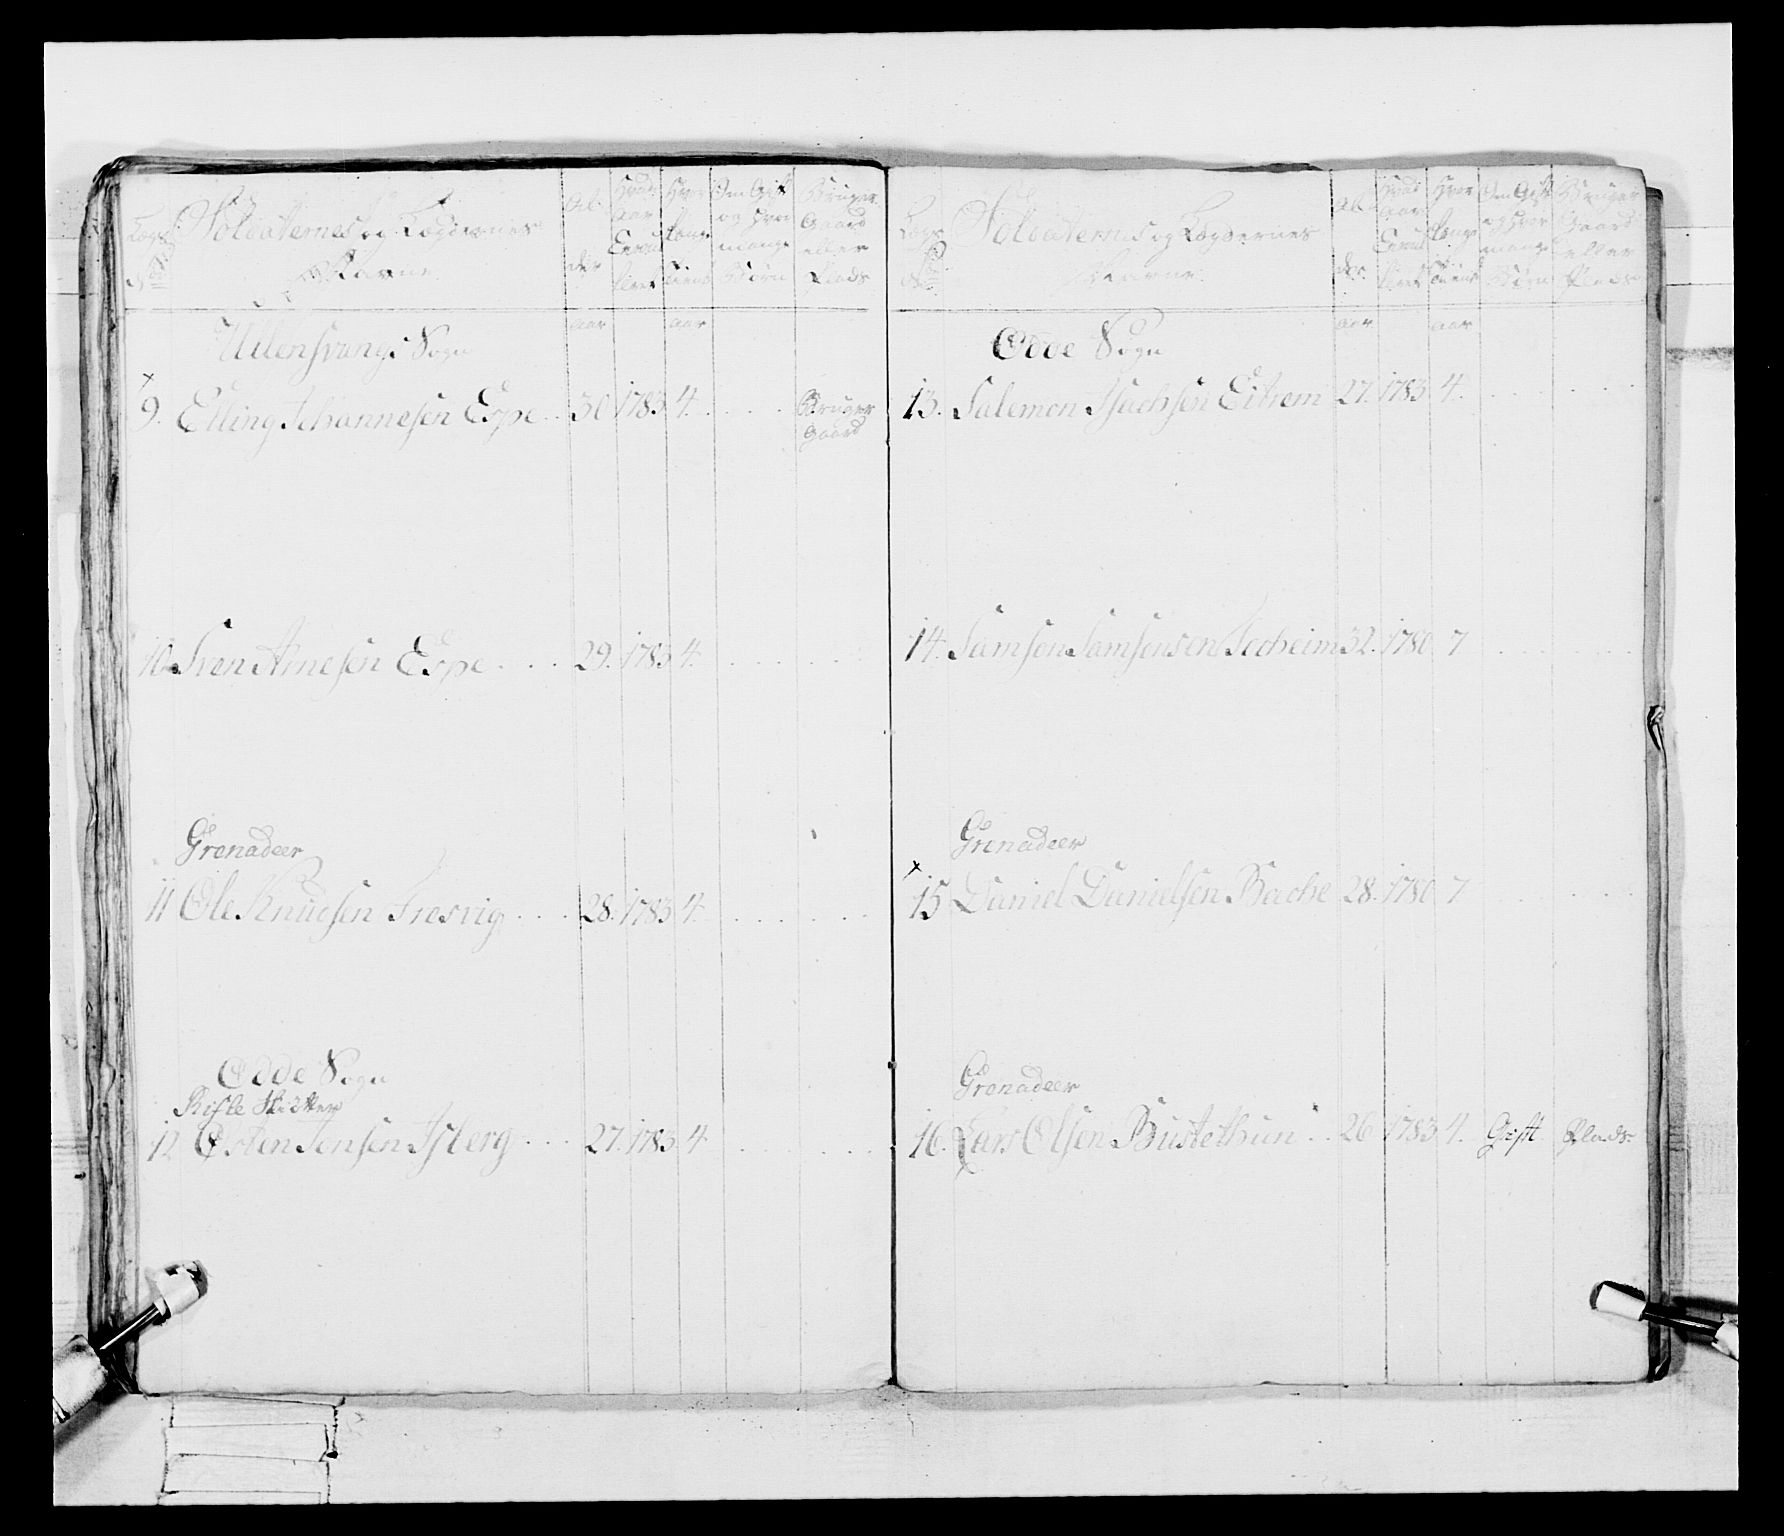 Soldaternes og Lægdernes
Navne
Al-
der
Hvad
Aar
Enroul-
leret
Hvor
længe
tient
Om Gift
og hvor
mange
Børn
Bruger
Gaard
eller
Plads
aar
aar
Ullensvangs Sogn
9. Elling Johannesen Espe .. 30 1783 4. Bruger
Gaard
10 Sven Arnesen Espe .... 29. 1783 4.
Grenadeer
11 Ole Knudsen Tresvig .... 28. 1783 4.
Odde Sogn
Rifle Skÿtter
12 Osten Jonsen Isberg .... 27. 1783 4
Soldaternes og Lægdernes
Navne
Al-
der.
Hvad
Aar
Enroul-
leret
Hvor
længe
tient
Om Gift
og hvor
mange
Børn
Bruger
Gaard
eller
Plads
aar
aar
Odde Sogn
13. Salemon Isachsen Eitrem 27. 1783 4.
14. Samson Samsonsen Jordheim 32. 1780 7
Grenadeer
15 Daniel Danielsen Bache 28. 1780 7
Grenadeer
16. Lars Olsen Bustethun .. 26 1783 4. Gift Plads